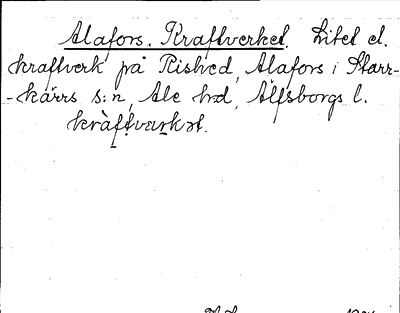 Alafors. Kraftverket. Litet el.
kraftverk på Rished, Alafors i Starr-
-kärrs s:n, Ale hd, Älfsborgs l.
kràftværkət.